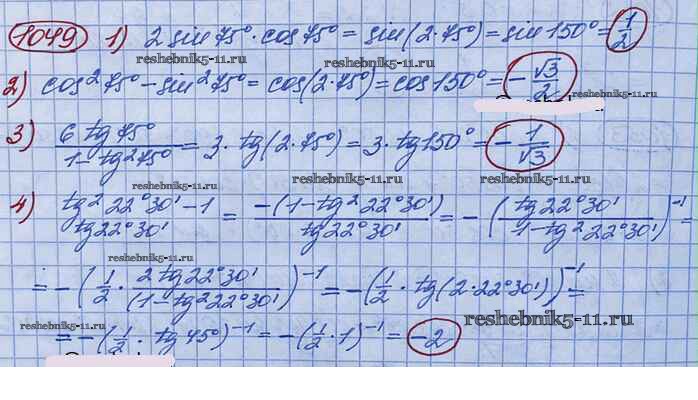 1049 1) 2 sin 75° · cos 75° = sin(2·75°) = sin 150° = 1/2
reshebnik5-11.ru
2) cos² 75° - sin² 75° = cos(2·75°) = cos 150° = - √3/2
3) 6 tg 75° / 1 - tg² 75° = 3 · tg(2·75°) = 3 · tg 150° = - 1/√3
reshebnik5-11.ru reshebnik5-11.ru reshebnik5-11.ru
4) tg² 22°30' - 1 / tg 22°30' = -(1 - tg² 22°30') / tg 22°30' = - (tg 22°30' / 1 - tg² 22°30')⁻¹ =
reshebnik5-11.ru
= - (1/2 · 2 tg 22°30' / (1 - tg² 22°30'))⁻¹ = - (1/2 · tg(2·22°30'))⁻¹ =
reshebnik5-11.ru
= - (1/2 · tg 45°)⁻¹ = - (1/2 · 1)⁻¹ = -2